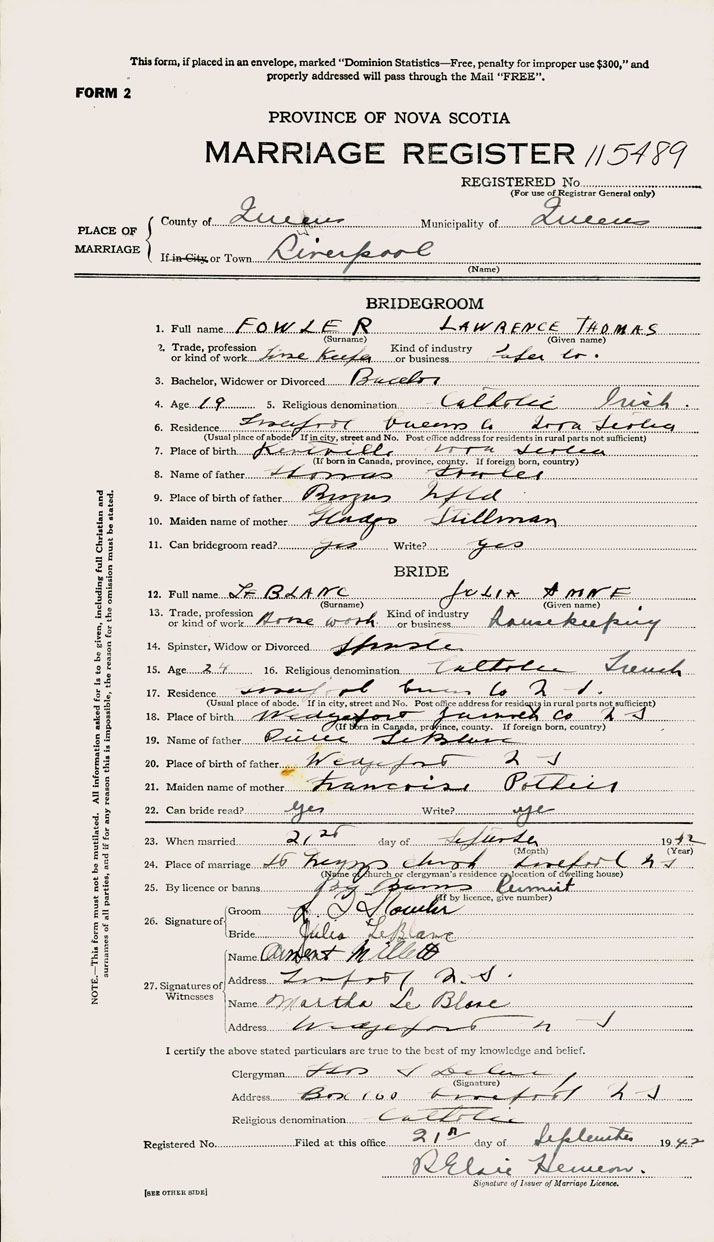 This form, if placed in an envelope, marked "Dominion Statistics—Free, penalty for improper use $300," and
properly addressed will pass through the Mail "FREE".
FORM 2
PROVINCE OF NOVA SCOTIA
MARRIAGE REGISTER 115489
REGISTERED No.
(For use of Registrar General only)
PLACE OF MARRIAGE
County of Queens Municipality of Queens
If in City, or Town Liverpool
(Name)
BRIDEGROOM
1. Full name FOWLER LAWRENCE THOMAS
(Surname) (Given name)
2. Trade, profession or kind of work Keeper Kind of industry or business Co.
3. Bachelor, Widower or Divorced Bacelor
4. Age 19 5. Religious denomination Catholic Irish.
6. Residence Liverpool Queens Co Nova Scotia
(Usual place of abode. If in city, street and No. Post office address for residents in rural parts not sufficient)
7. Place of birth Kentville Nova Scotia
(If born in Canada, province, county. If foreign born, country)
8. Name of father Thomas Fowler
9. Place of birth of father Brigus Nfld
10. Maiden name of mother Gladys Stillman
11. Can bridegroom read? yes Write? yes
BRIDE
12. Full name LEBLANC JULIA ANNE
(Surname) (Given name)
13. Trade, profession or kind of work House work Kind of industry or business housekeeping
14. Spinster, Widow or Divorced Spinster
15. Age 24 16. Religious denomination Catholic French
17. Residence Liverpool Queens Co N S.
(Usual place of abode. If in city, street and No. Post office address for residents in rural parts not sufficient)
18. Place of birth Wedgeport Yarmouth Co N S
(If born in Canada, province, county. If foreign born, country)
19. Name of father Pierre LeBlanc
20. Place of birth of father Wedgeport N S
21. Maiden name of mother Francoise Pothier
22. Can bride read? yes Write? yes
23. When married 21st day of September 1942
(Month) (Year)
24. Place of marriage St Church Liverpool N S
(Name of church or clergyman's residence or location of dwelling house)
25. By licence or banns By Banns Permit
(If by licence, give number)
26. Signature of
Groom L. T. Fowler
Bride Julia LeBlanc
27. Signatures of Witnesses
Name Millett
Address Liverpool N.S.
Name Martha Le Blanc
Address Wedgeport N S
I certify the above stated particulars are true to the best of my knowledge and belief.
Clergyman Thos
(Signature)
Address Box 100 Liverpool N S
Religious denomination Catholic
Registered No. Filed at this office 21st day of September 1942
B Elsie Hemeon.
Signature of Issuer of Marriage Licence.
[SEE OTHER SIDE]
NOTE.—This form must not be mutilated. All information asked for is to be given, including full Christian and
surnames of all parties, and if for any reason this is impossible, the reason for the omission must be stated.